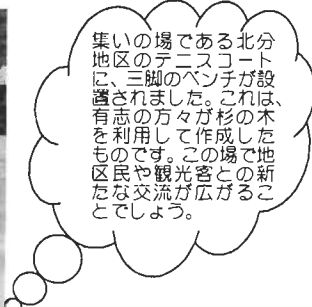 集いの場である北分
地区のテニスコート
に、三脚のベンチが設
置されました。これは、
有志の方々が杉の木
を利用して作成した
ものです。この場で地
区民や観光客との新
たな交流が広がるこ
とでしょう。